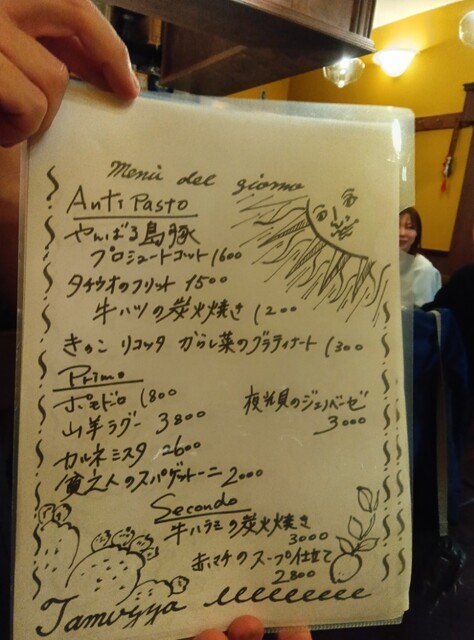 Menù del giorno
AntiPasto
やんばる島豚
プロシュートコット 1600
タチウオのフリット 1500
牛ハツの炭火焼き 1200
きのこ リコッタ からし菜のグラティナート 1300
Primo
ポモドロ 1800
山羊ラグー 3800
カルネミスタ 2600
貧乏人のスパゲットーニ 2000
夜光貝のジェノベーゼ
3000
Secondo
牛ハラミの炭火焼き
3000
赤マチのスープ仕立て
2800